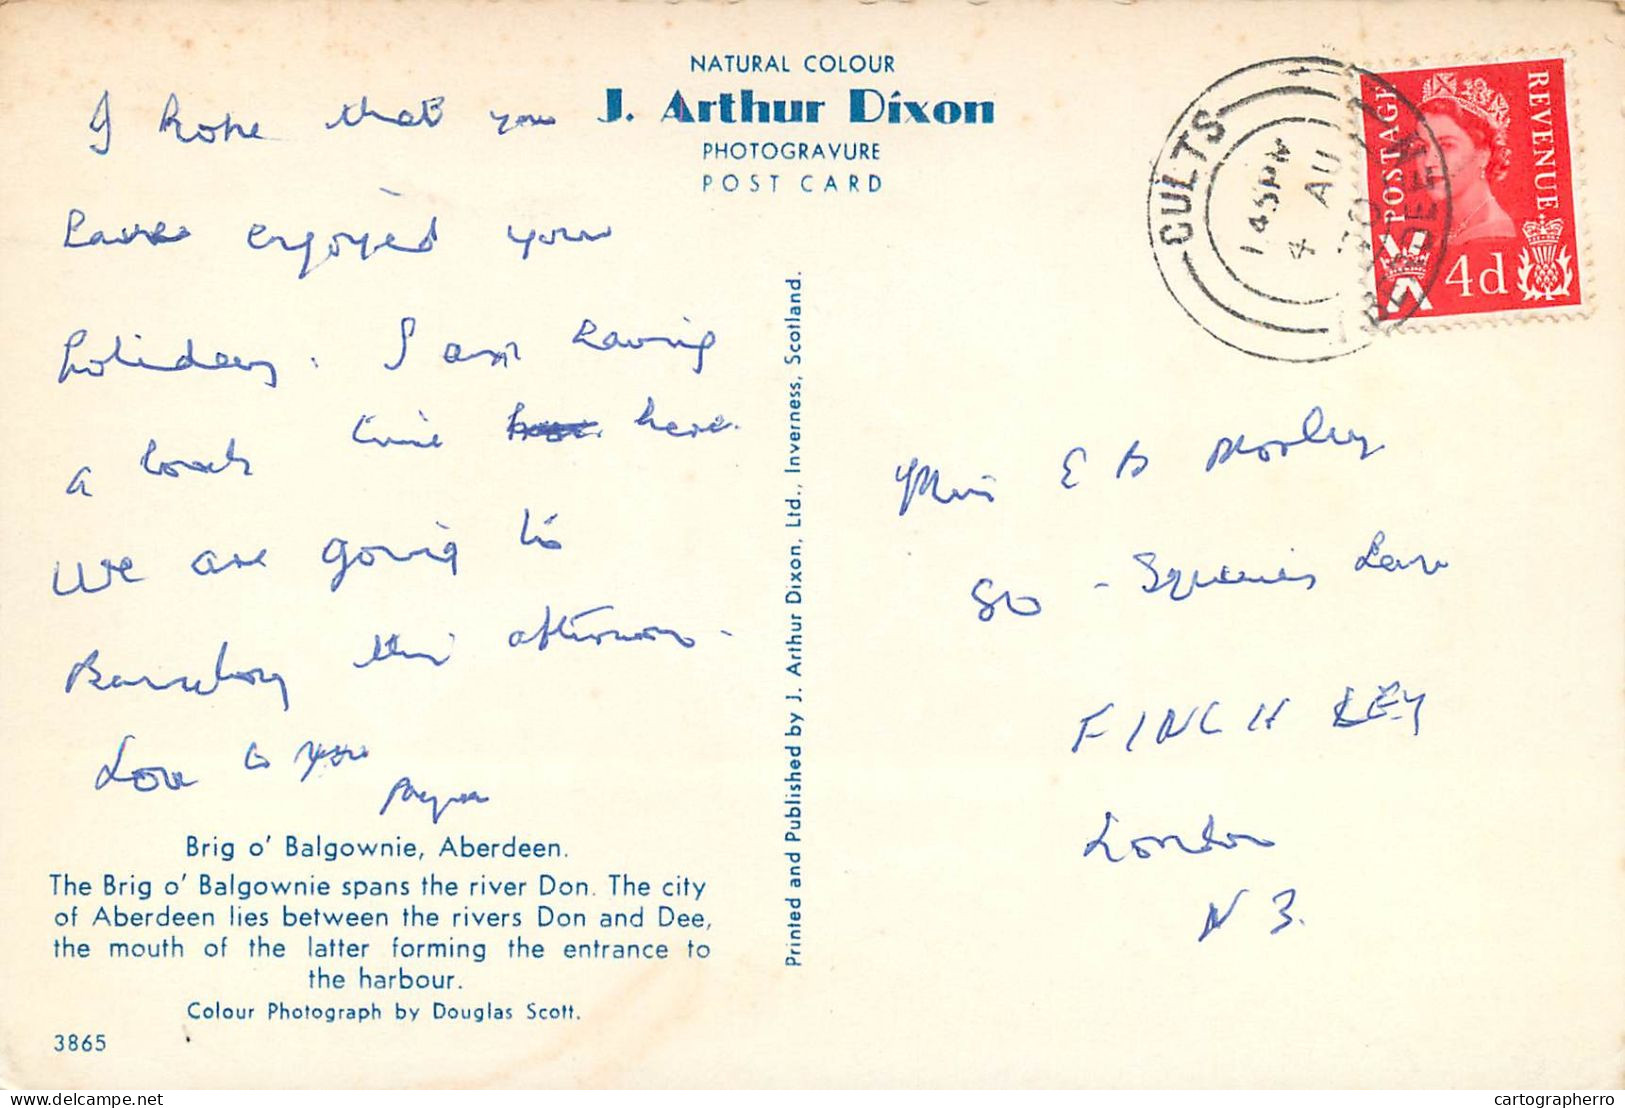 NATURAL COLOUR
J. Arthur Dixon
PHOTOGRAVURE
POST CARD
I hope that you
have enjoyed your
holidays. I am having
a lovely time here.
We are going to
this afternoon.
Love to you
Brig o' Balgownie, Aberdeen.
The Brig o' Balgownie spans the river Don. The city
of Aberdeen lies between the rivers Don and Dee,
the mouth of the latter forming the entrance to
the harbour.
Colour Photograph by Douglas Scott.
3865
Printed and Published by J. Arthur Dixon, Ltd., Inverness, Scotland.
CULTS
ABERDEEN
1 45PM
4 AU
POSTAGE
REVENUE
4d
Miss E B Morley
80 - Squires Lane
FINCHLEY
London
N 3.
delcampe.net
cartographerro